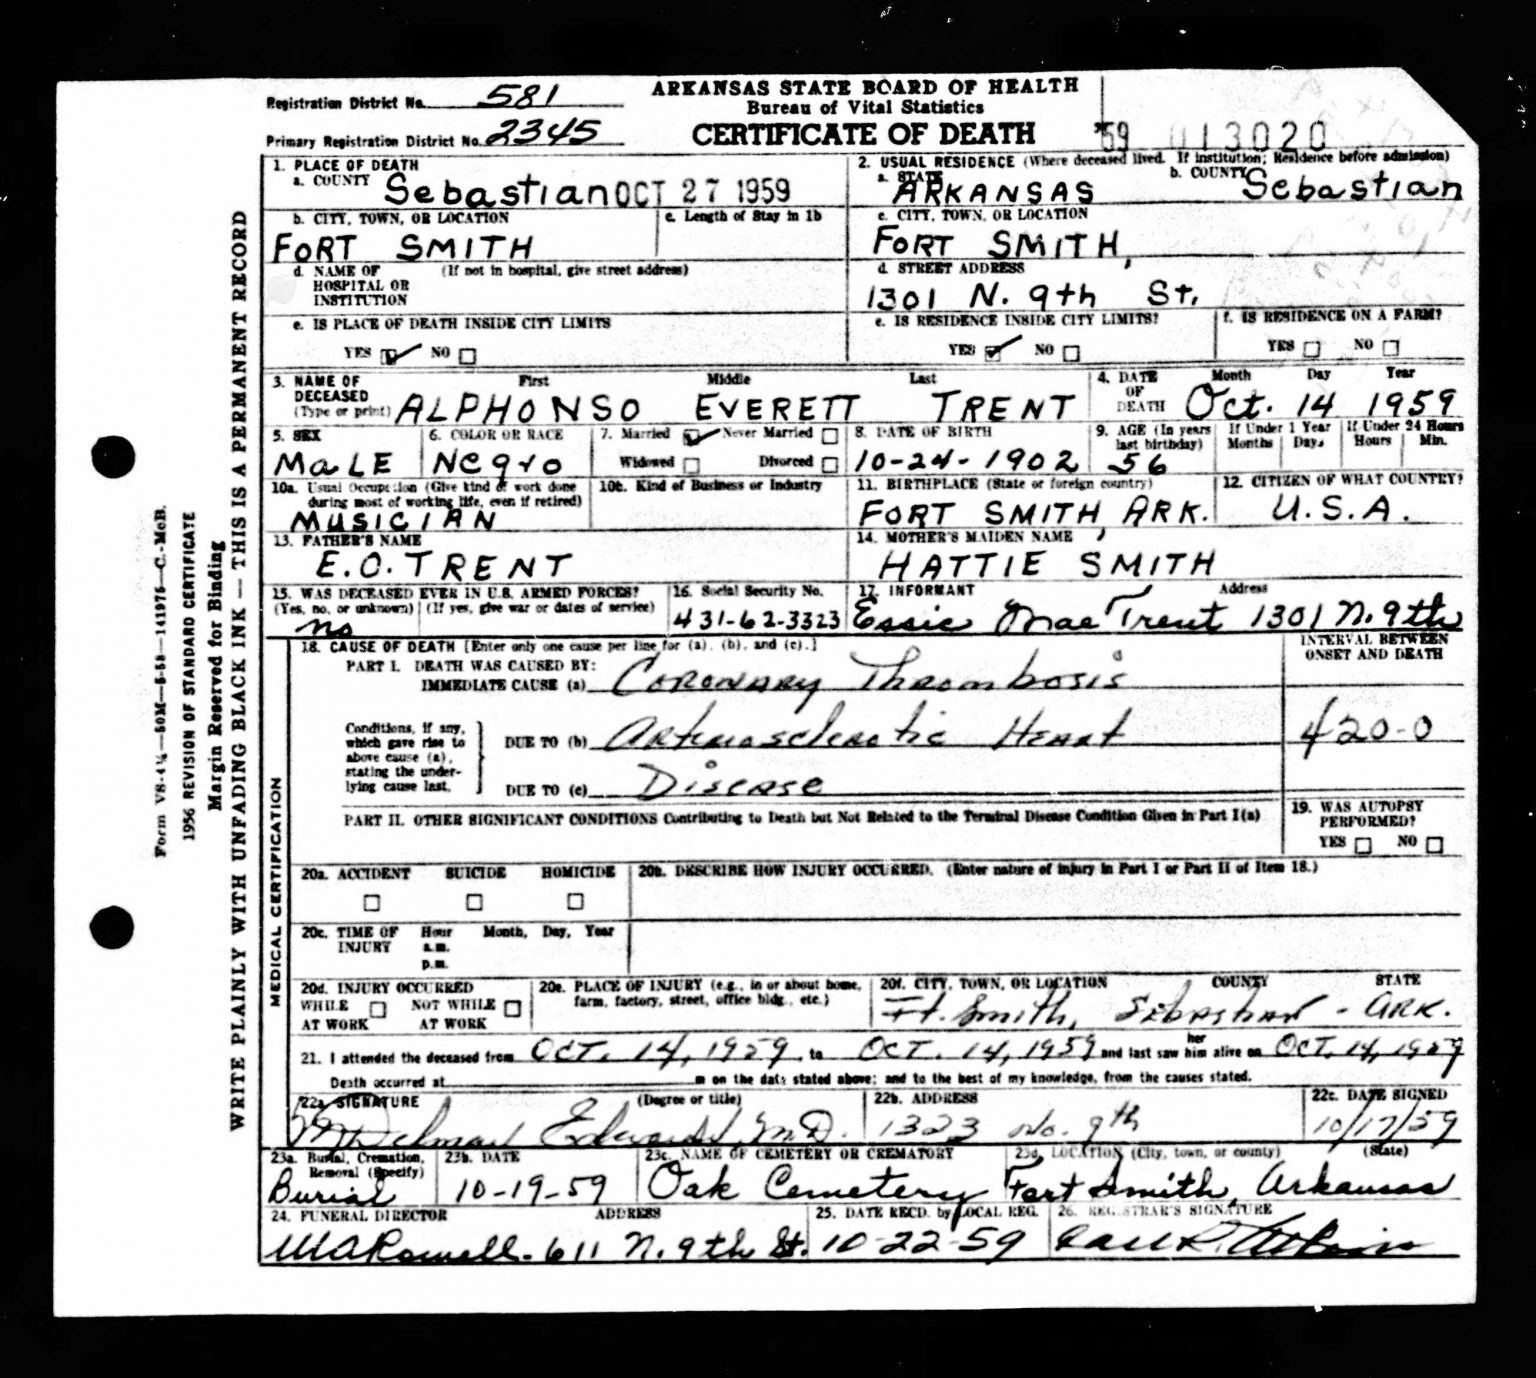 Registration District No. 581
ARKANSAS STATE BOARD OF HEALTH
Bureau of Vital Statistics
Primary Registration District No. 2345
CERTIFICATE OF DEATH
'59 013020
1. PLACE OF DEATH
a. COUNTY Sebastian OCT 27 1959
2. USUAL RESIDENCE (Where deceased lived. If institution; Residence before admission)
a. STATE ARKANSAS b. COUNTY Sebastian
b. CITY, TOWN, OR LOCATION
FORT SMITH
c. Length of Stay in 1b
c. CITY, TOWN, OR LOCATION
FORT SMITH,
d. NAME OF HOSPITAL OR INSTITUTION (If not in hospital, give street address)
d. STREET ADDRESS
1301 N. 9th St.
e. IS PLACE OF DEATH INSIDE CITY LIMITS
YES NO
e. IS RESIDENCE INSIDE CITY LIMITS?
YES NO
f. IS RESIDENCE ON A FARM?
YES NO
3. NAME OF DECEASED (Type or print) First Middle Last
ALPHONSO EVERETT TRENT
4. DATE OF DEATH Month Day Year
Oct. 14 1959
5. SEX
MaLE
6. COLOR OR RACE
Negro
7. Married Never Married
Widowed Divorced
8. DATE OF BIRTH
10-24-1902
9. AGE (In years last birthday)
56
If Under 1 Year
Months Days
If Under 24 Hours
Hours Min.
10a. Usual Occupation (Give kind of work done during most of working life, even if retired)
MUSICIAN
10b. Kind of Business or Industry
11. BIRTHPLACE (State or foreign country)
FORT SMITH, ARK.
12. CITIZEN OF WHAT COUNTRY?
U.S.A.
13. FATHER'S NAME
E.O. TRENT
14. MOTHER'S MAIDEN NAME
HATTIE SMITH
15. WAS DECEASED EVER IN U.S. ARMED FORCES?
(Yes, no, or unknown) (If yes, give war or dates of service)
no
16. Social Security No.
431-62-3323
17. INFORMANT Address
Essie Mae Trent 1301 N. 9th
18. CAUSE OF DEATH [Enter only one cause per line for (a), (b), and (c).]
INTERVAL BETWEEN ONSET AND DEATH
PART I. DEATH WAS CAUSED BY:
IMMEDIATE CAUSE (a) Coronary Thrombosis
Conditions, if any, which gave rise to above cause (a), stating the underlying cause last.
DUE TO (b) Arteriosclerotic Heart
420-0
DUE TO (c) Disease
PART II. OTHER SIGNIFICANT CONDITIONS Contributing to Death but Not Related to the Terminal Disease Condition Given in Part I(a)
19. WAS AUTOPSY PERFORMED?
YES NO
20a. ACCIDENT SUICIDE HOMICIDE
20b. DESCRIBE HOW INJURY OCCURRED. (Enter nature of injury in Part I or Part II of Item 18.)
20c. TIME OF INJURY Hour Month, Day, Year
a.m.
p.m.
20d. INJURY OCCURRED
WHILE AT WORK NOT WHILE AT WORK
20e. PLACE OF INJURY (e.g., in or about home, farm, factory, street, office bldg., etc.)
20f. CITY, TOWN, OR LOCATION COUNTY STATE
Ft. Smith, Sebastian - ARK.
21. I attended the deceased from OCT. 14, 1959 to OCT. 14, 1959 and last saw her him alive on OCT. 14, 1959
Death occurred at m on the date stated above; and to the best of my knowledge, from the causes stated.
22a. SIGNATURE (Degree or title)
Delmar Edwards, M.D.
22b. ADDRESS
1323 No. 9th
22c. DATE SIGNED
10/17/59
23a. Burial, Cremation, Removal (Specify)
Burial
23b. DATE
10-19-59
23c. NAME OF CEMETERY OR CREMATORY
Oak Cemetery
23d. LOCATION (City, town, or county) (State)
Fort Smith, Arkansas
24. FUNERAL DIRECTOR ADDRESS
Rowell. 611 N. 9th St.
25. DATE RECD. by LOCAL REG.
10-22-59
26. REGISTRAR'S SIGNATURE
MEDICAL CERTIFICATION
WRITE PLAINLY WITH UNFADING BLACK INK — THIS IS A PERMANENT RECORD
Margin Reserved for Binding
1956 REVISION OF STANDARD CERTIFICATE
Form VS-4¼—50M—5-58—141975—C.-McB.